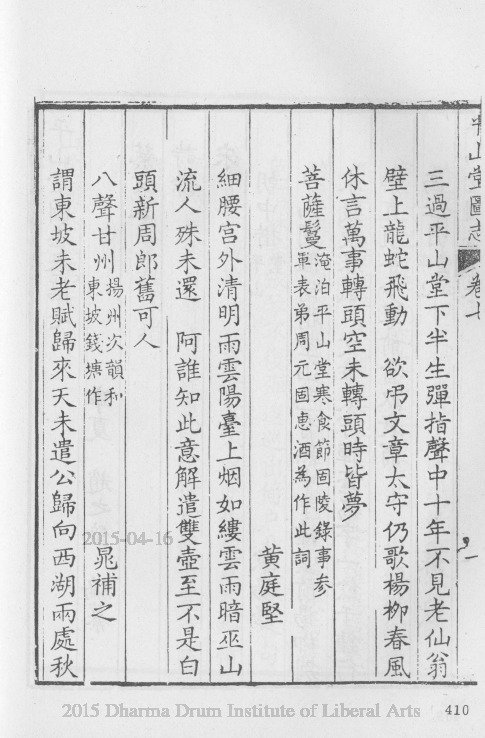 平山堂圖志 卷七
三過平山堂下半生彈指聲中十年不見老仙翁
壁上龍蛇飛動 欲弔文章太守仍歌楊柳春風
休言萬事轉頭空未轉頭時皆夢
菩薩鬘 淹泊平山堂寒食節固陵錄事參
軍表弟周元固惠酒為作此詞
黃庭堅
細腰宮外清明雨雲陽臺上烟如縷雲雨暗巫山
流人殊未還 阿誰知此意解遣雙壺至不是白
頭新周郎舊可人
八聲甘州 揚州次韻和
東坡錢塘作
晁補之
謂東坡未老賦歸來天未遣公歸向西湖兩處秋
2015-04-16
2015 Dharma Drum Institute of Liberal Arts
410